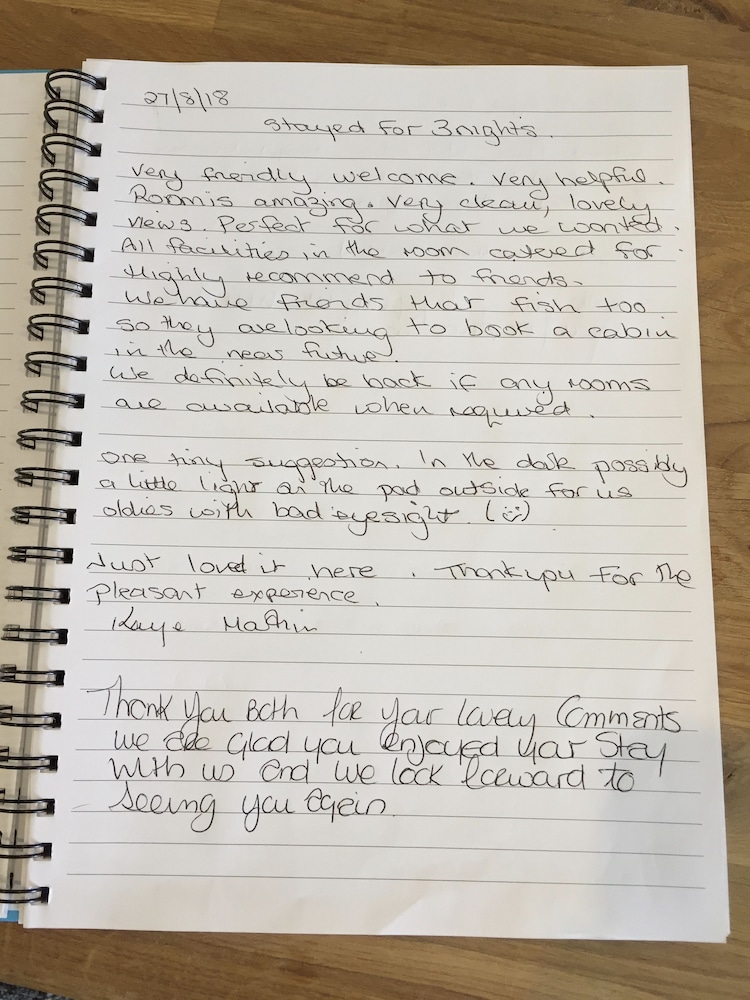 27/8/18
Stayed for 3 nights.
Very freindly welcome. Very helpful.
Room is amazing. Very clean, lovely
views. Perfect for what we wanted.
All facilities in the room catered for.
Highly recommend to friends.
We have friends that fish too
so they are looking to book a cabin
in the near future.
We definitely be back if any rooms
are available when required.
One tiny suggestion. In the dark possibly
a little light on the pad outside for us
oldies with bad eyesight. (☺)
Just loved it here. Thankyou for the
pleasant experience.
Kaye
Thank you Both for your lovely Comments
we are glad you enjoyed your Stay
With us and we look forward to
Seeing you again.